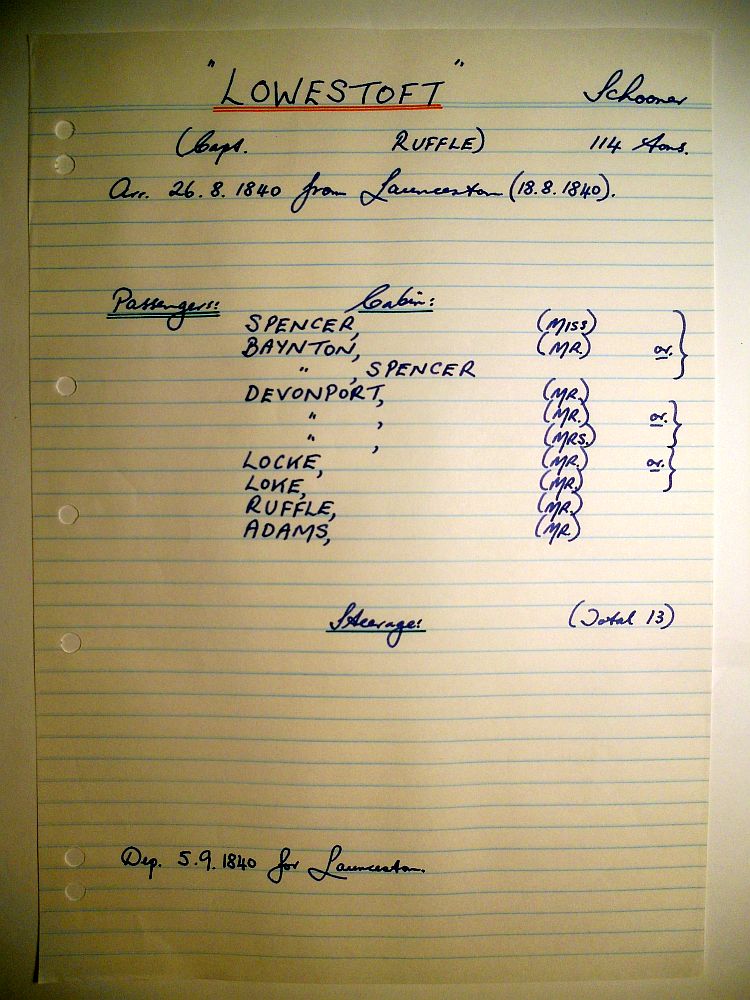 "LOWESTOFT" Schooner
(Capt. RUFFLE) 114 tons.
Arr. 26.8.1840 from Launceston (18.8.1840).
Passengers: Cabin:
SPENCER, (MISS)
BAYNTON, (MR.) or.
" , SPENCER
DEVONPORT, (MR.)
" , (MR.) or.
" , (MRS.)
LOCKE, (MR.) or.
LOKE, (MR.)
RUFFLE, (MR.)
ADAMS, (MR)
Steerage: (Total 13)
Dep. 5.9.1840 for Launceston.